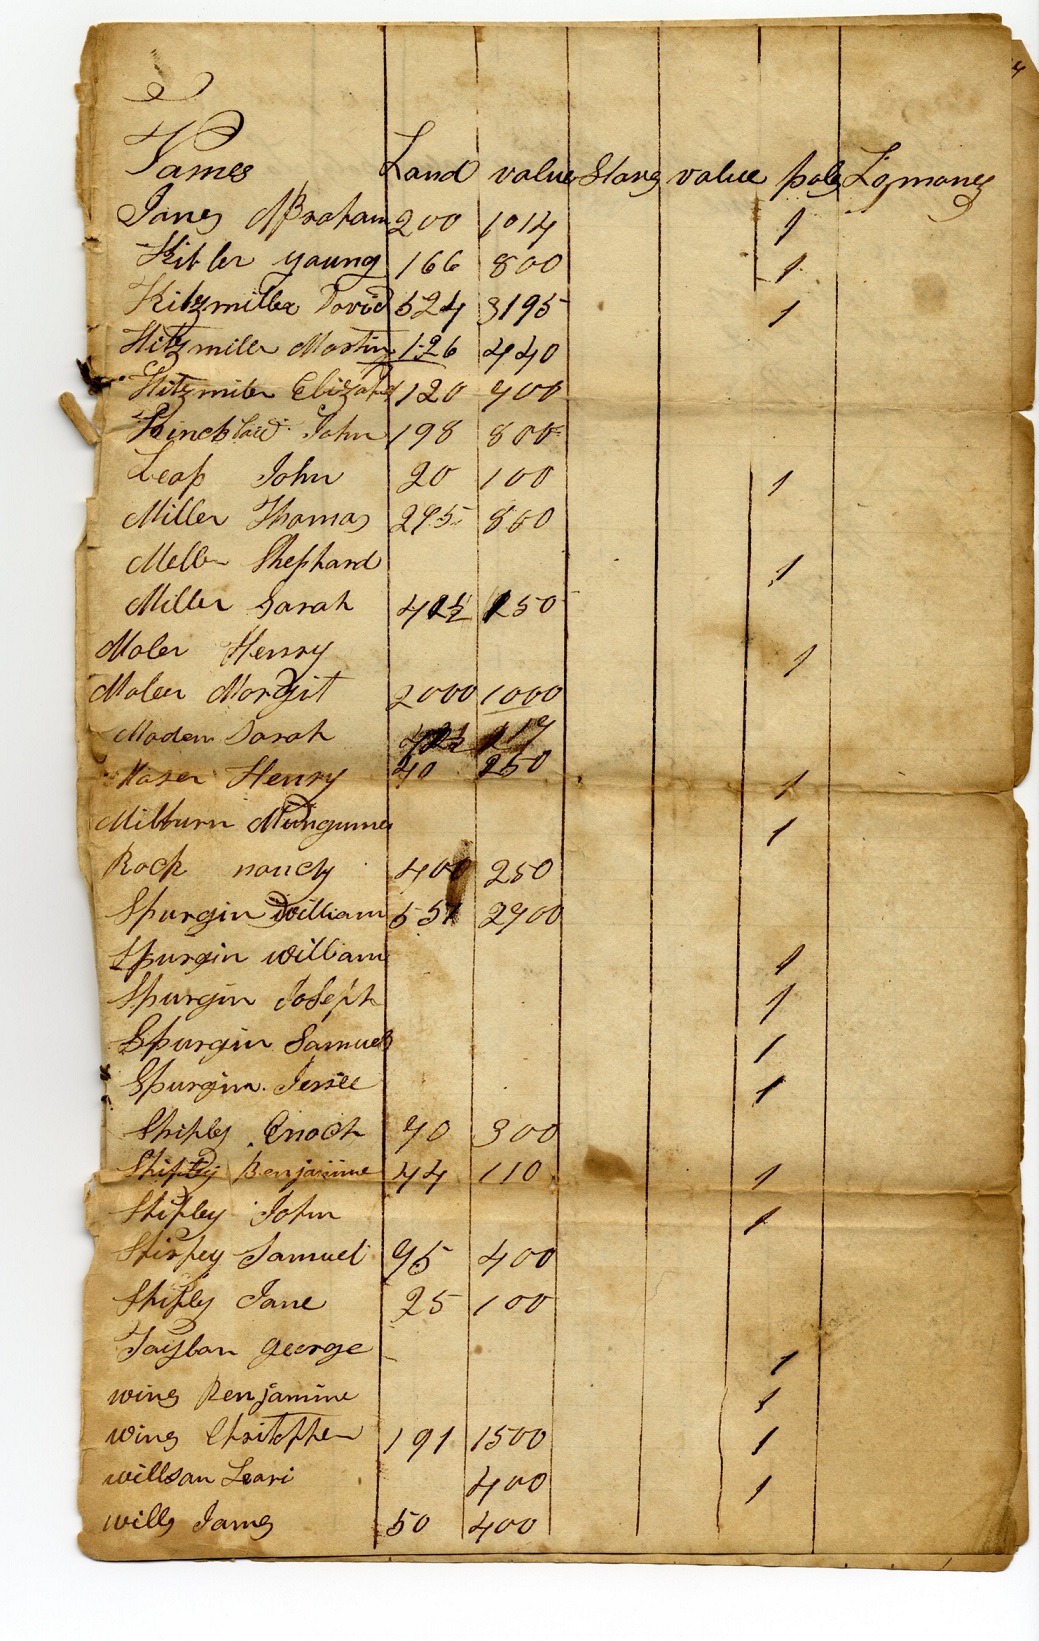 Names Land value Slaves value pole L,g money
Jones Abraham 200 1014 1
Kibler young 166 800 1
Kitzmiller David 524 3195 1
Kitzmiler Martin 126 440
Kitzmiler Elizabeth 120 700
John 198 800
Leap John 20 100 1
Miller Thomas 275 800
Meller Shephard 1
Miller Sarah 150
Moler Henry 1
Moler Margit 2000 1000
Moden Sarah
Maser Henry 40 250 1
Milburn 1
Rock nancy 400 250
Spurgin William 551 2700
Spurgin william 1
Spurgin Joseph 1
Spurgin Samuel 1
Spurgin Jessee 1
Shipley Enoch 70 300
Shipley Benjamine 44 110 1
Shipley John 1
Shirpey Samuel 95 400
Shipley Jane 25 100
george 1
wines Benjamine 1
wines 191 1500 1
willson Leavi 400 1
wills James 50 400